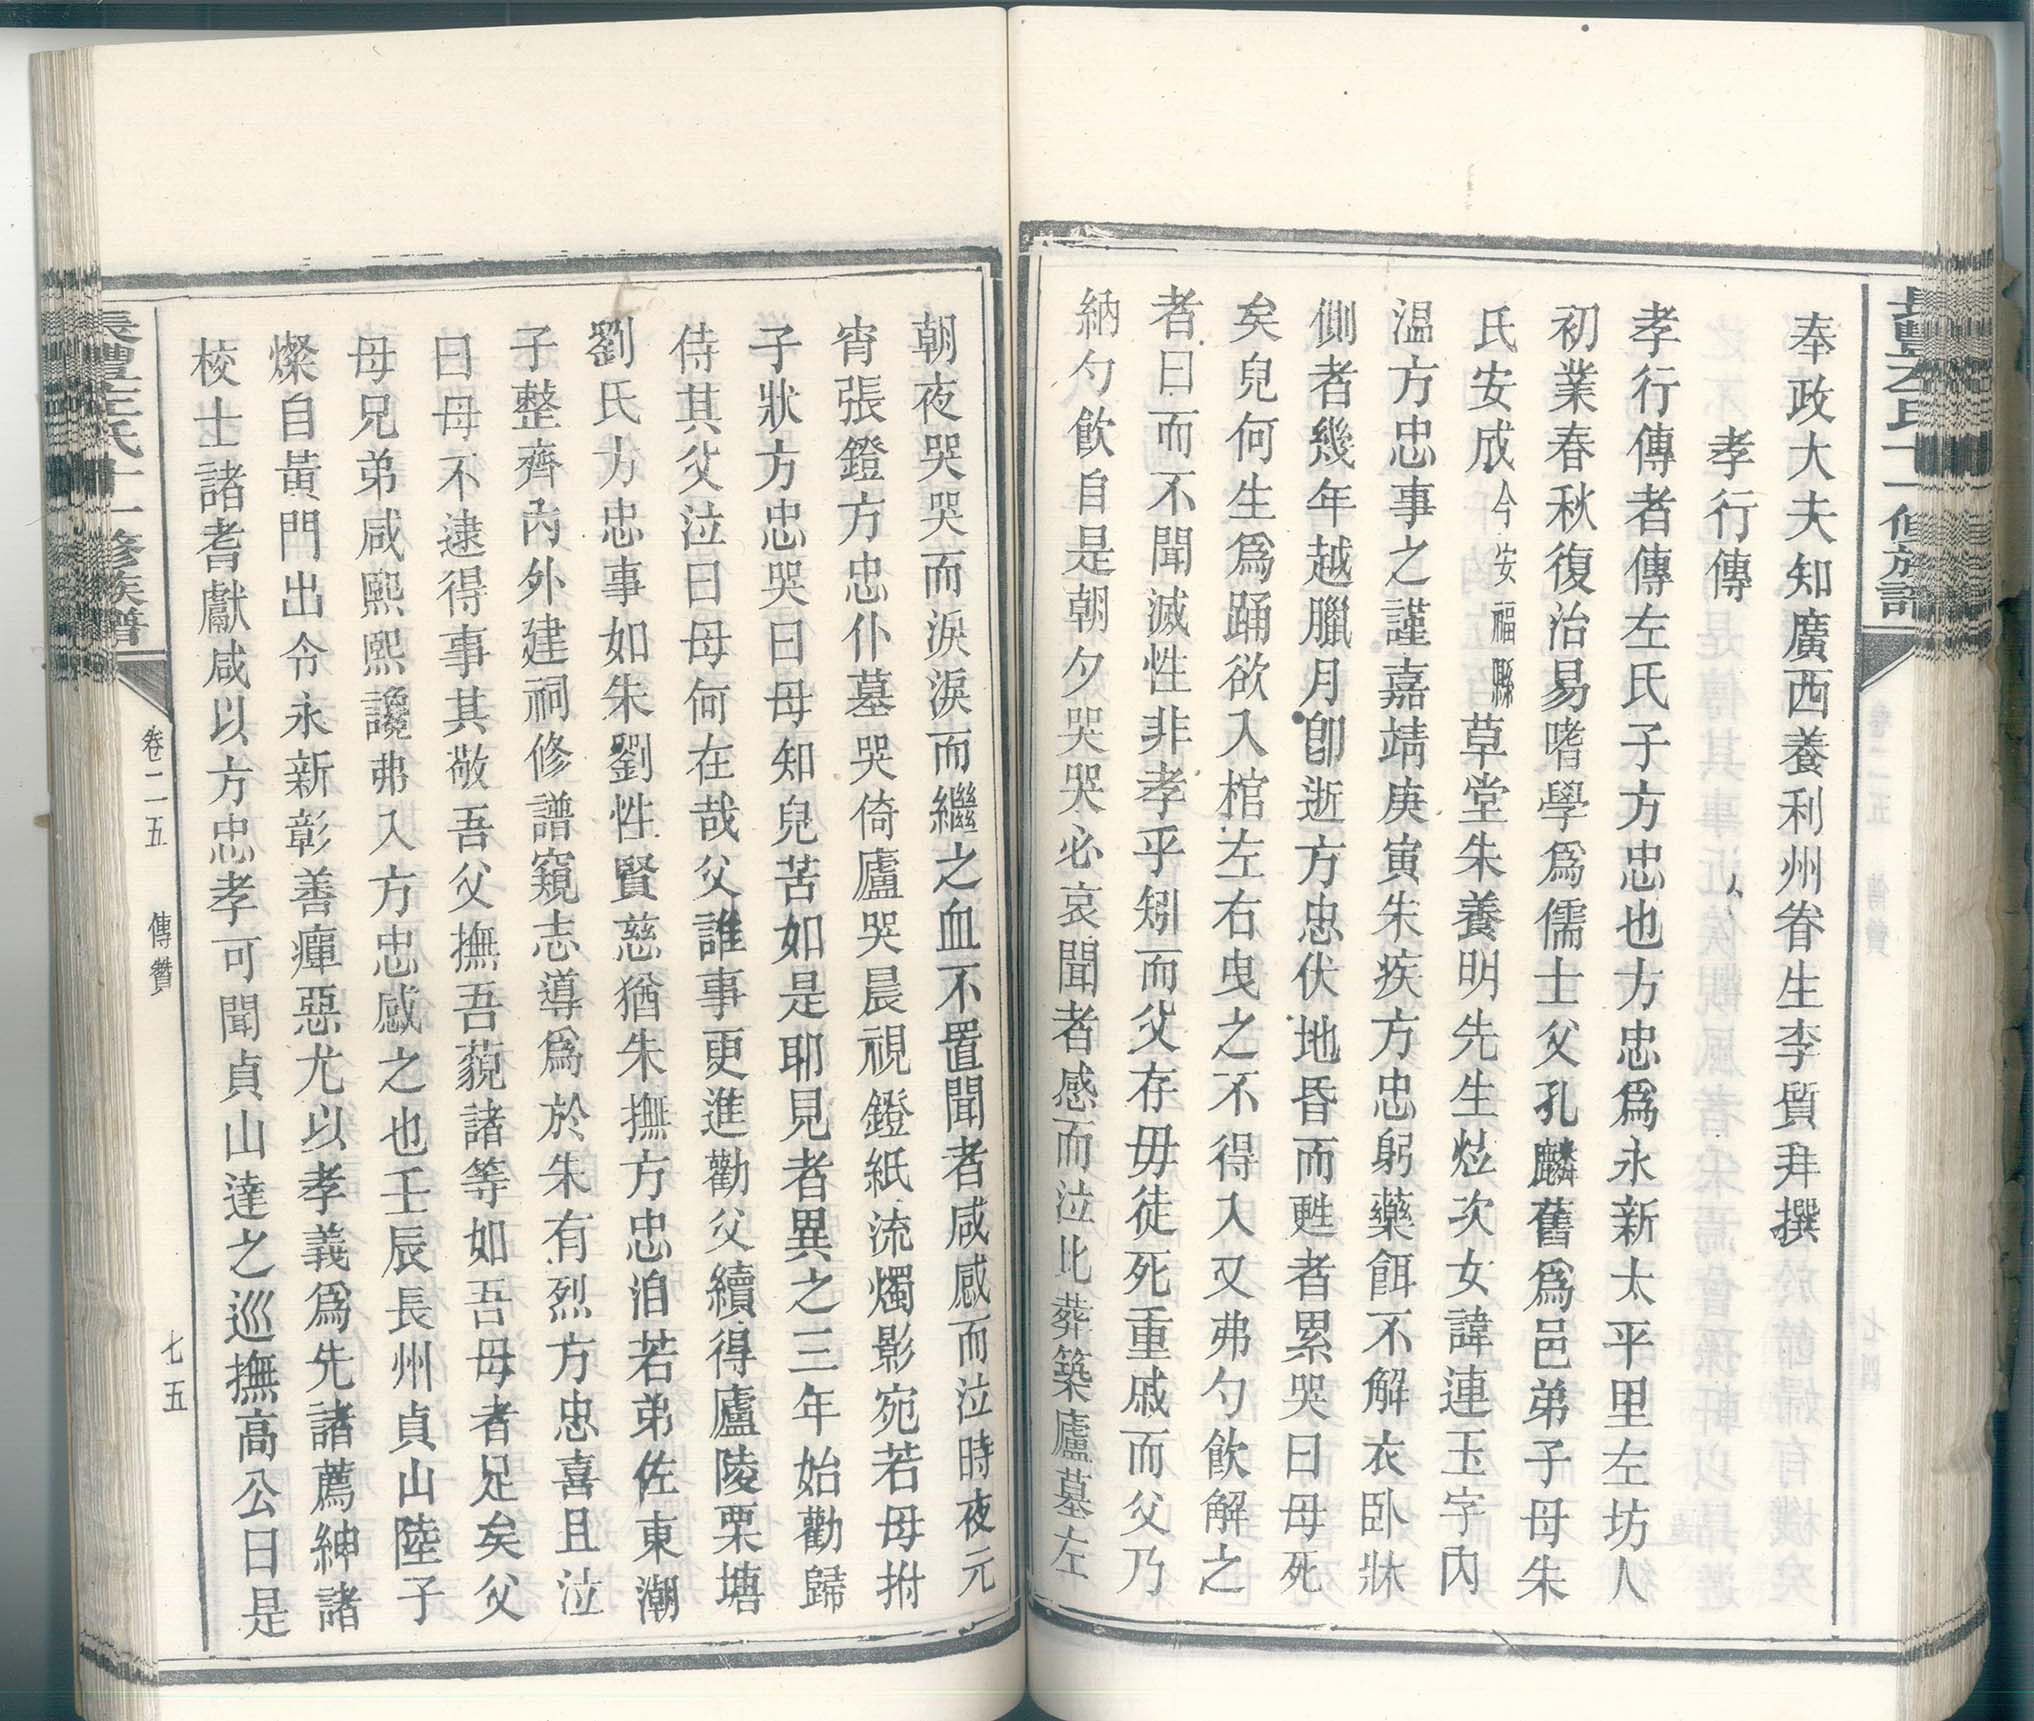 奉政大夫知廣西養利州眷生李質拜撰
孝行傳
孝行傳者傳左氏子方忠也方忠爲永新太平里左坊人
初業春秋復治易嗜學爲儒士父孔麟舊爲邑弟子母朱
氏安成今安福縣草堂朱養明先生炫次女諱連玉字內
溫方忠事之謹嘉靖庚寅朱疾方忠躬藥餌不解衣臥牀
側者幾年越臘月卽逝方忠伏地昏而甦者累哭曰母死
矣兒何生爲踊欲入棺左右曳之不得入又弗勺飲解之
者曰而不聞滅性非孝乎矧而父存毋徒死重戚而父乃
納勺飲自是朝夕哭哭必哀聞者感而泣比葬築廬墓左
朝夜哭哭而淚淚而繼之血不置聞者咸感而泣時夜元
宵張鐙方忠仆墓哭倚廬哭晨視鐙紙流燭影宛若母拊
子狀方忠哭曰母知兒苦如是耶見者異之三年始勸歸
侍其父泣曰母何在哉父誰事更進勸父續得廬陵栗塘
劉氏方忠事如朱劉性賢慈猶朱撫方忠洎若弟佐東潮
子整齊內外建祠修譜窺志導爲於朱有烈方忠喜且泣
曰母不逮得事其敬吾父撫吾藐諸等如吾母者足矣父
母兄弟咸熙熙讒弗入方忠感之也壬辰長州貞山陸子
燦自黃門出令永新彰善癉惡尤以孝義爲先諸薦紳諸
校士諸耆獻咸以方忠孝可聞貞山達之巡撫高公曰是
卷二五
傳贊
七五